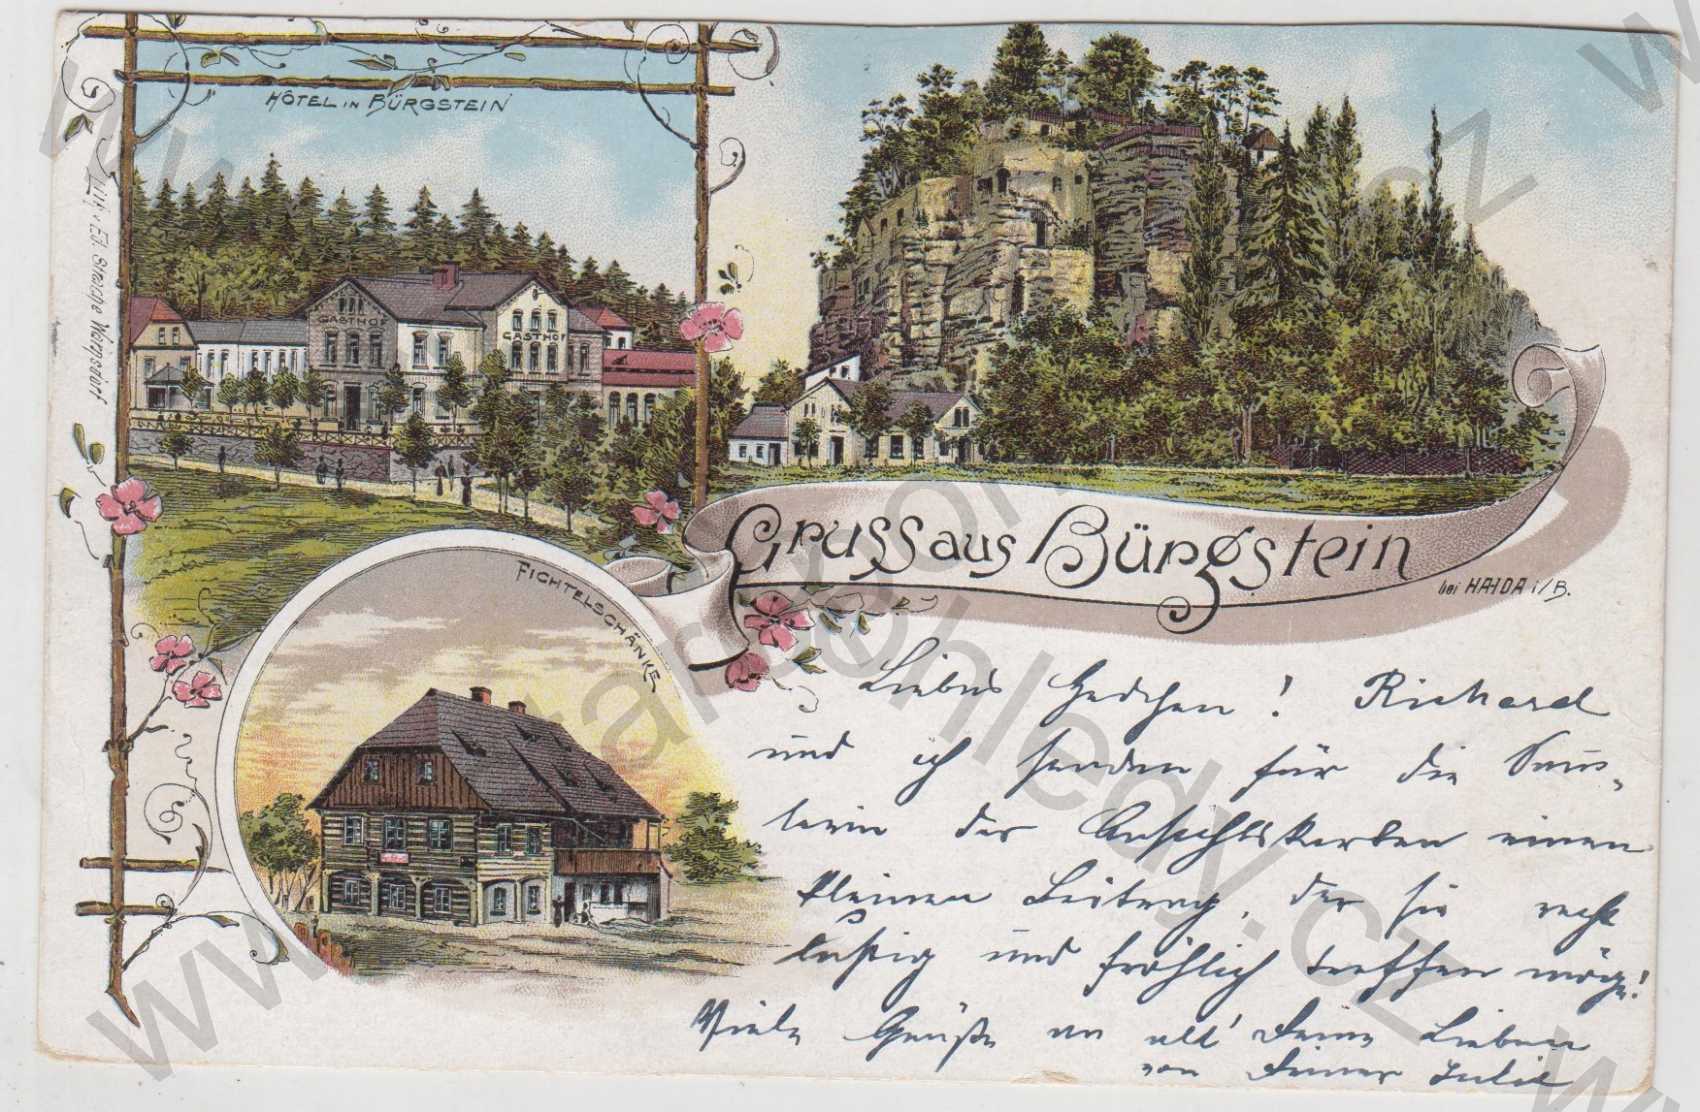 HÔTEL IN BÜRGSTEIN
GASTHOF
GASTHOF
FICHTELSCHÄNKE
Gruss aus Bürgstein
bei HAIDA i/B.
Liebes Hedchen! Richard
und ich senden für die
der Ansichtskarten einen
kleinen Beitrag, der sie recht
lustig und fröhlich treffen möge!
Viele Grüße an all' Deine Lieben
von Deiner Julie
www.starepohledy.cz